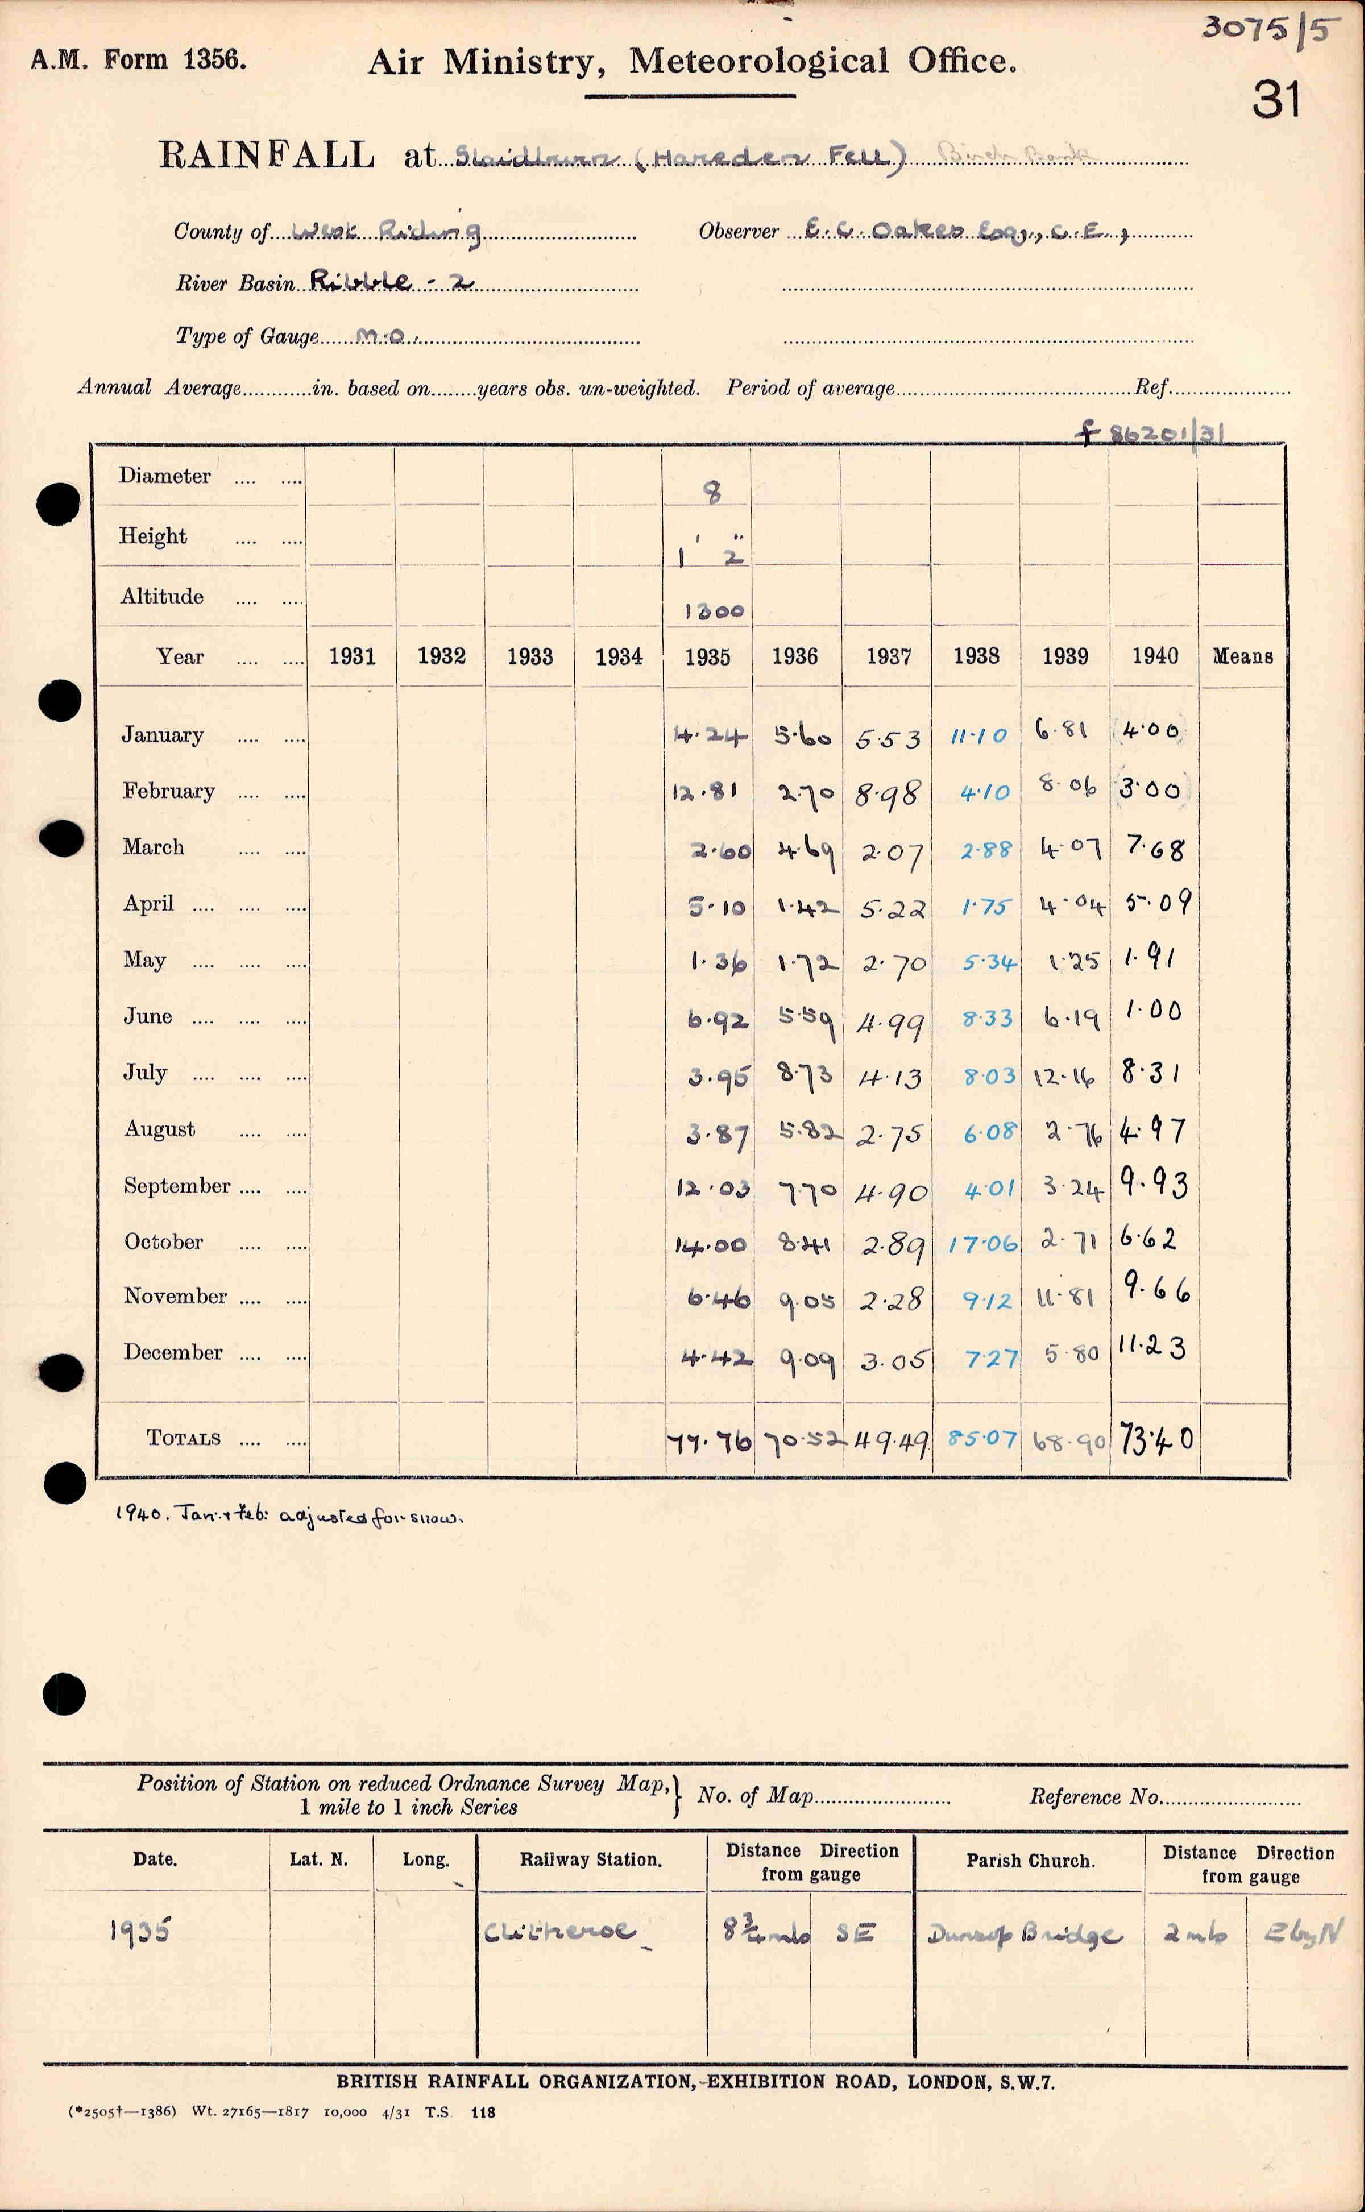 3075/5
A.M. Form 1356. Air Ministry, Meteorological Office.
31
RAINFALL at Slaidburn (Hareden Fell) Birch Bank
County of West Riding Observer E. C. Oakes Esq., C.E.,
River Basin Ribble - 2
Type of Gauge M.O.
Annual Average............in. based on........years obs. un-weighted. Period of average........................Ref.....................
f 86201/31
Diameter .... .... 8
Height .... .... 1' 2"
Altitude .... .... 1300
Year .... .... 1931 1932 1933 1934 1935 1936 1937 1938 1939 1940 Means
January .... .... 4.24 5.60 5.53 11.10 6.81 (4.00)
February .... .... 12.81 2.70 8.98 4.10 8.06 (3.00)
March .... .... 2.60 4.69 2.07 2.88 4.07 7.68
April .... .... .... 5.10 1.42 5.22 1.75 4.04 5.09
May .... .... .... 1.36 1.72 2.70 5.34 1.25 1.91
June .... .... .... 6.92 5.59 4.99 8.33 6.19 1.00
July .... .... .... 3.95 8.73 4.13 8.03 12.16 8.31
August .... .... 3.87 5.82 2.75 6.08 2.76 4.97
September .... .... 12.03 7.70 4.90 4.01 3.24 9.93
October .... .... 14.00 8.41 2.89 17.06 2.71 6.62
November .... .... 6.46 9.05 2.28 9.12 11.81 9.66
December .... .... 4.42 9.09 3.05 7.27 5.80 11.23
TOTALS .... .... 77.76 70.52 49.49 85.07 68.90 73.40
1940. Jan. + Feb: adjusted for snow.
Position of Station on reduced Ordnance Survey Map,} No. of Map........................ Reference No.........................
1 mile to 1 inch Series
Date. Lat. N. Long. Railway Station. Distance Direction from gauge Parish Church. Distance Direction from gauge
1935 Clitheroe 8¾ mls SE Dunsop Bridge 2 mls E by N
BRITISH RAINFALL ORGANIZATION, EXHIBITION ROAD, LONDON, S.W.7.
(*2505†—1386) Wt. 27165—1817 10,000 4/31 T.S. 118